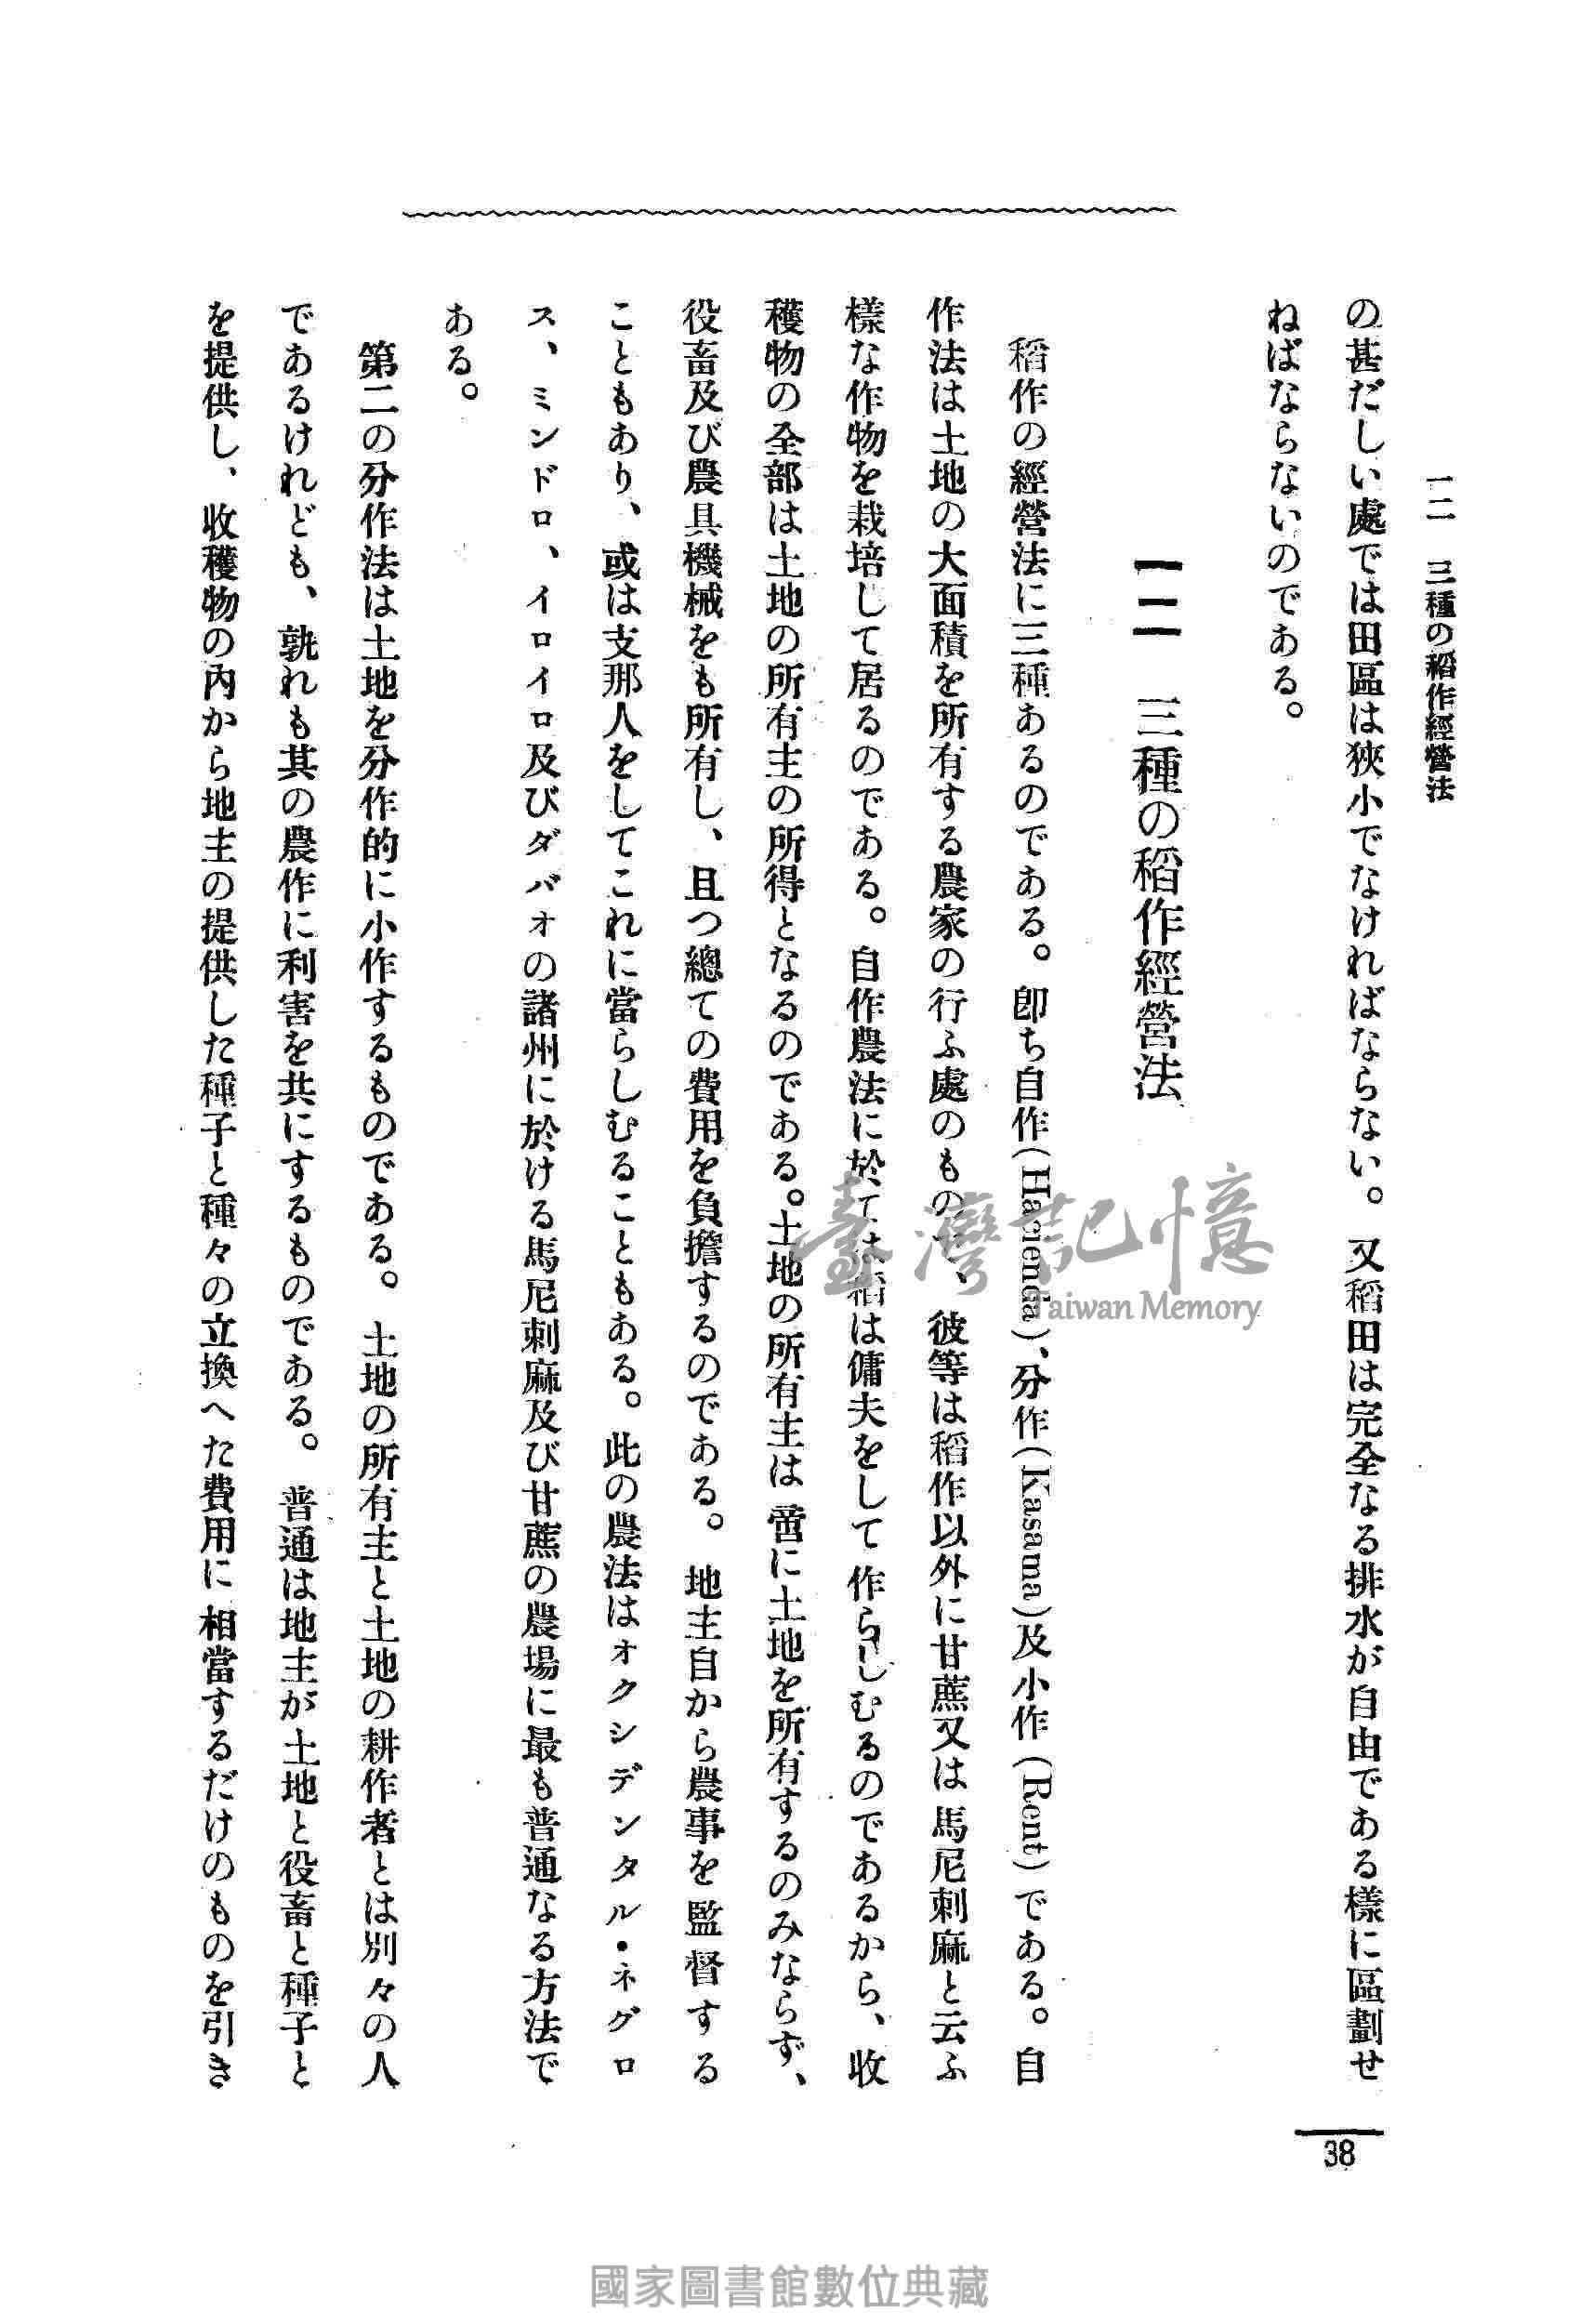 一二　三種の稻作經營法
の甚だしい處では田區は狹小でなければならない。又稻田は完全なる排水が自由である樣に區劃せ
ねばならないのである。
一二　三種の稻作經營法
稻作の經營法に三種あるのである。卽ち自作(Hacienda)、分作(Kasama)及小作(Rent)である。自
作法は土地の大面積を所有する農家の行ふ處のもので、彼等は稻作以外に甘蔗又は馬尼剌麻と云ふ
樣な作物を栽培して居るのである。自作農法に於ては稻は傭夫をして作らしむるのであるから、收
穫物の全部は土地の所有主の所得となるのである。土地の所有主は啻に土地を所有するのみならず、
役畜及び農具機械をも所有し、且つ總ての費用を負擔するのである。地主自から農事を監督する
こともあり、或は支那人をしてこれに當らしむることもある。此の農法はオクシデンタル・ネグロ
ス、ミンドロ、イロイロ及びダバオの諸州に於ける馬尼剌麻及び甘蔗の農場に最も普通なる方法で
ある。
第二の分作法は土地を分作的に小作するものである。土地の所有主と土地の耕作者とは別々の人
であるけれども、孰れも其の農作に利害を共にするものである。普通は地主が土地と役畜と種子と
を提供し、收穫物の內から地主の提供した種子と種々の立換へた費用に相當するだけのものを引き
38
臺灣記憶
Taiwan Memory
國家圖書館數位典藏